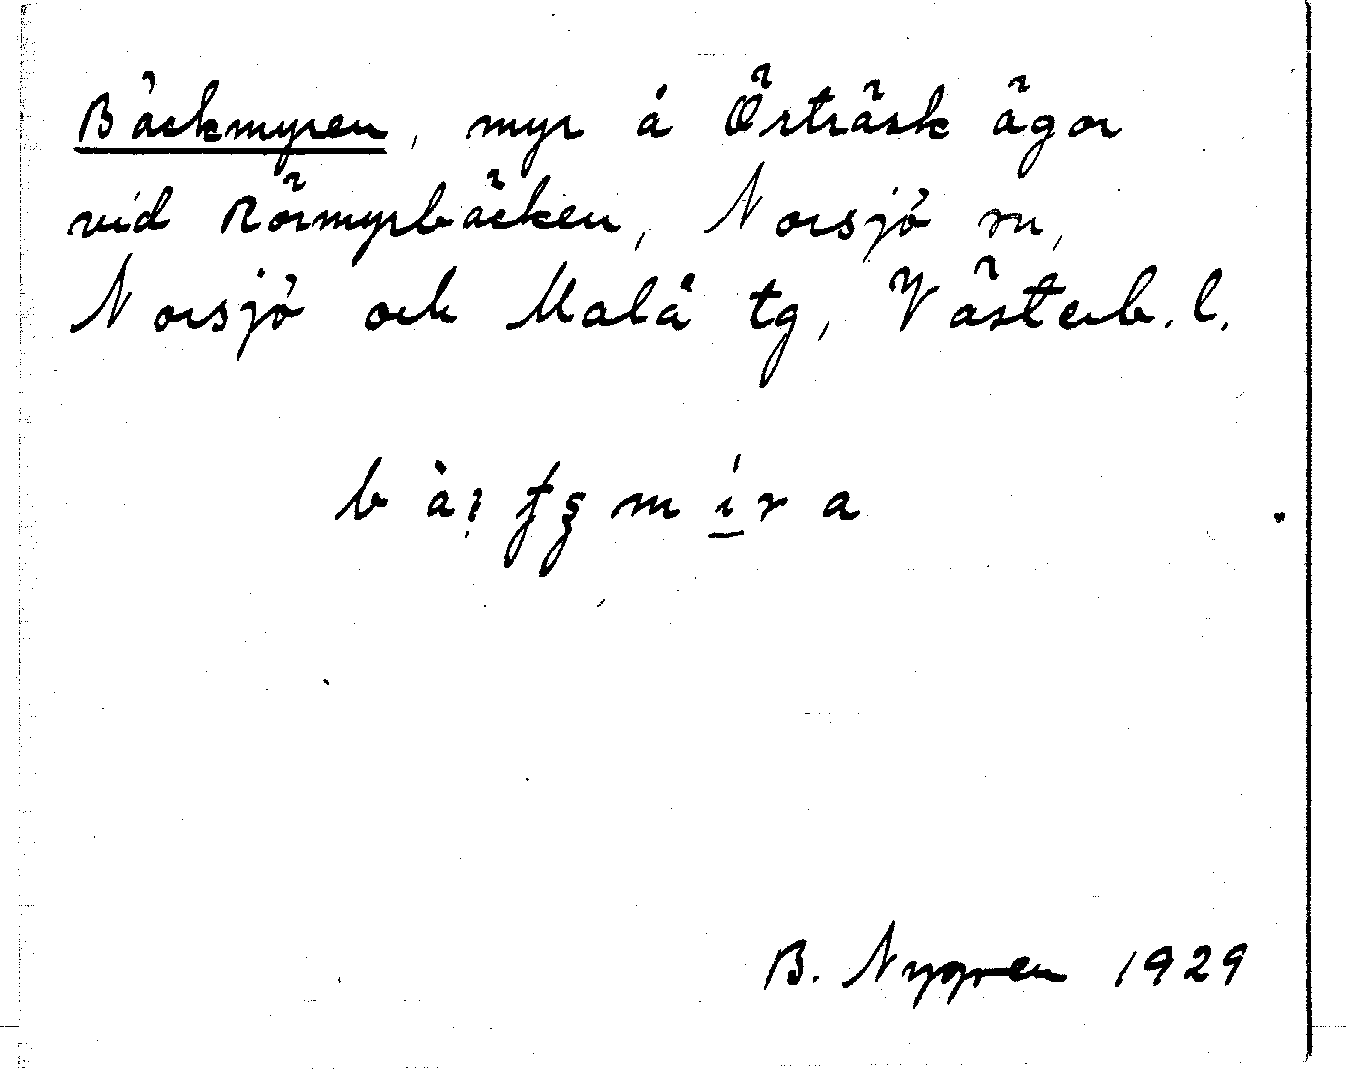 Bäckmyren, myr å Örträsk ägor
vid Rörmyrbäcken, Norsjö sn,
Norsjö och Malå tg, Västerb. l.
B. Nygren 1929